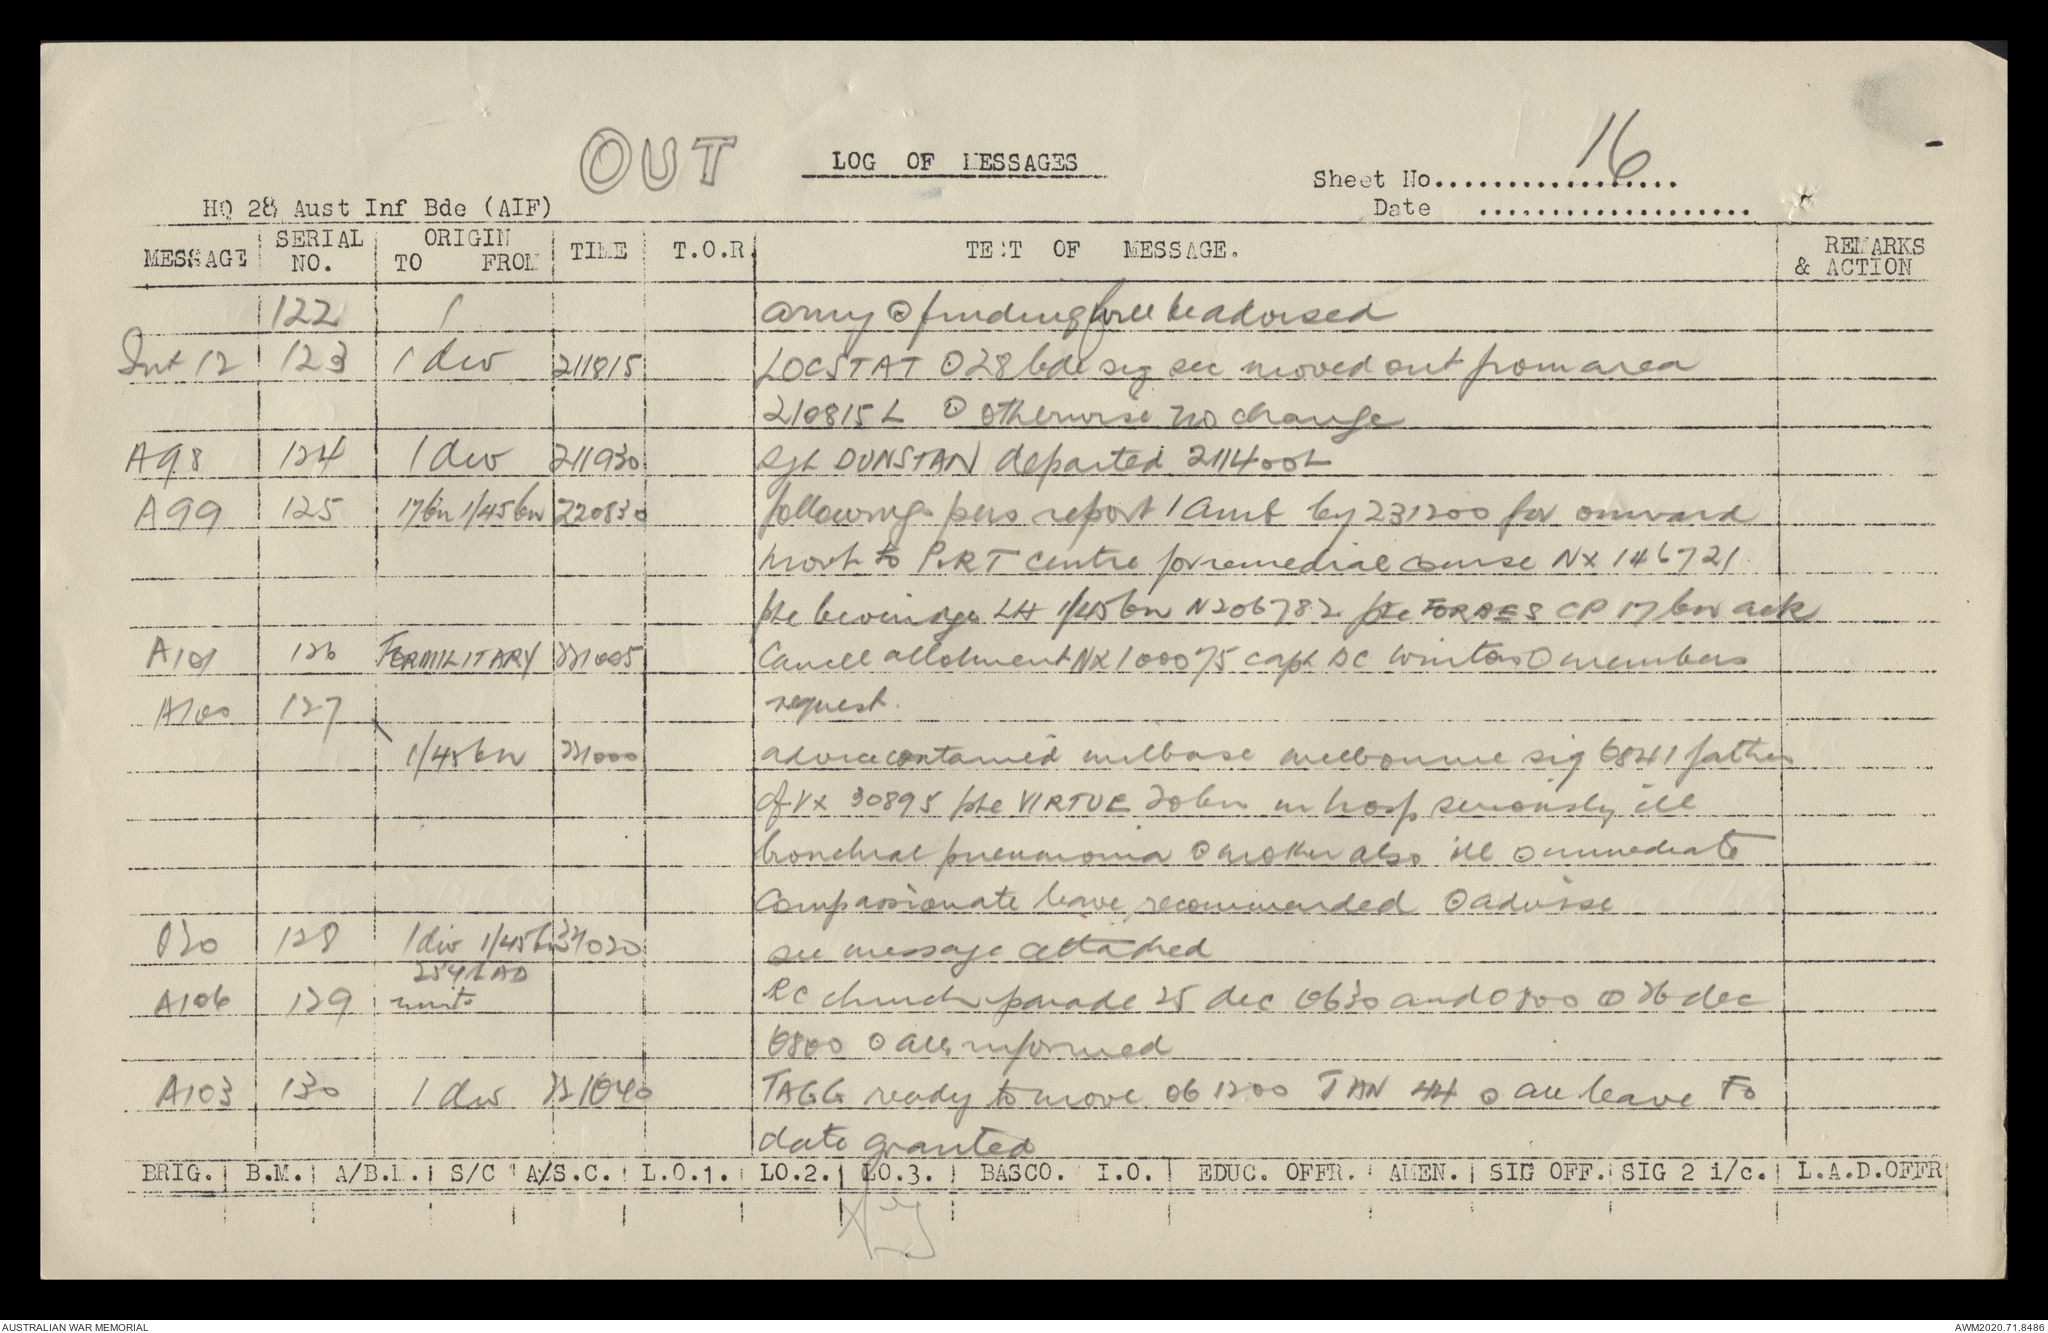 OUT
LOG OF MESSAGES
16
Sheet No..................
Date ...................
HQ 28 Aust Inf Bde (AIF)
MESSAGE SERIAL NO. ORIGIN TO FROM TIME T.O.R. TEXT OF MESSAGE. REMARKS & ACTION
122 army ⊙ finding will be advised
Int 12 123 1 div 211815 LOCSTAT ⊙ 28 bde sig sec moved out from area
210815L ⊙ otherwise no change
A98 124 1 div 211930 Sgt DUNSTAN departed 211400L
A99 125 17bn 1/45bn 220830 following pers report 1 Amb by 231200 for onward
to P&RT centre for remedial course NX 146721
pte LH 1/45bn N206782 pte FORBES CP 17 bn ack
A101 126 FERMILITARY 221005 Cancel allotment NX100075 capt DC ⊙ members
A100 127 request.
1/45bn 221000 advice contained milbase melbourne sig 6841 father
of VX 30895 pte VIRTUE John in hosp seriously ill
bronchial pneumonia ⊙ mother also ill ⊙ immediate
compassionate leave recommended ⊙ advise
128 1div 1/45bn see message attached
LAD
A106 129 units RC church parade 25 dec 0630 and 0800 ⊙ 26 dec
0800 ⊙ all informed
A103 130 1 div 221040 TAGG ready to move 061200 JAN 44 ⊙ all leave to
date granted
BRIG. B.M. A/B.M. S/C A/S.C. L.O.1. LO.2. LO.3. BASCO. I.O. EDUC. OFFR. AMEN. SIG OFF. SIG 2 i/c. L.A.D.OFFR
AUSTRALIAN WAR MEMORIAL
AWM2020.71.8486